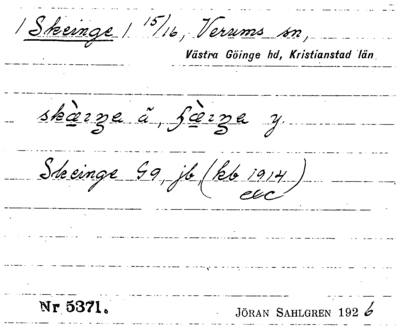 / Skeinge / 15/16, Verums sn,
Västra Göinge hd, Kristianstad län
ä, y.
Skeinge G9, jb, (kb 1914)
etc
Nr 5371.
JÖRAN SAHLGREN 1926